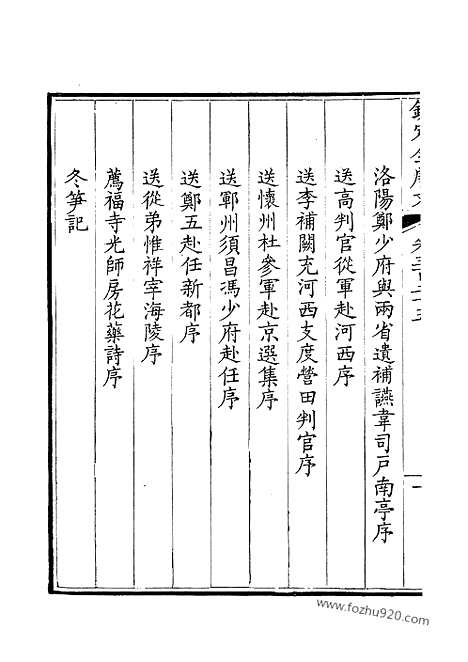 欽定全唐文 卷三百二十五 一
洛陽鄭少府與兩省遺補讌韋司戸南亭序
送高判官從軍赴河西序
送李補闕充河西支度營田判官序
送懷州杜參軍赴京選集序
送鄆州須昌馮少府赴任序
送鄭五赴任新都序
送從弟惟祥宰海陵序
薦福寺光師房花藥詩序
冬筍記
www.fozhu920.com